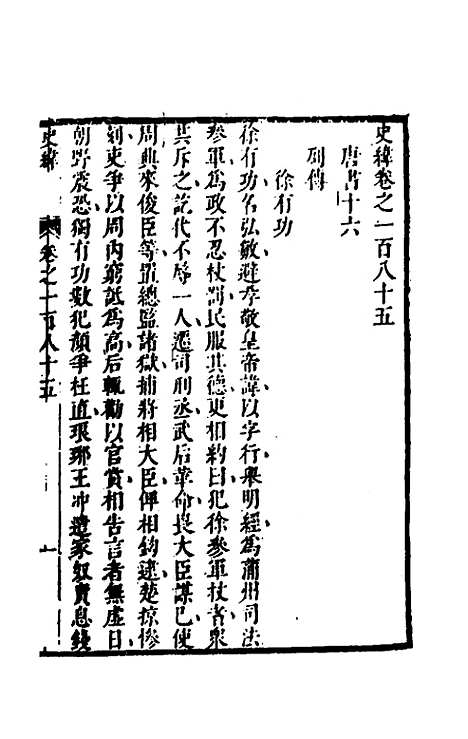 史緯卷之一百八十五
唐書十六
列傳
徐有功
徐有功名弘敏避孝敬皇帝諱以字行舉明經爲蒲州司法
參軍爲政不忍杖罰民服其德更相約曰犯徐參軍杖者衆
共斥之訖代不辱一人遷司刑丞武后革命畏大臣謀已使
周興來俊臣等置總監諸獄捕將相大臣俾相鉤逮楚掠慘
刻吏爭以周内窮詆爲高后輒勸以官賞相告言者無虛日
朝野震恐獨有功數犯顏爭枉直琅琊王冲遣家奴責息錢
史緯
卷之一百八十五
一